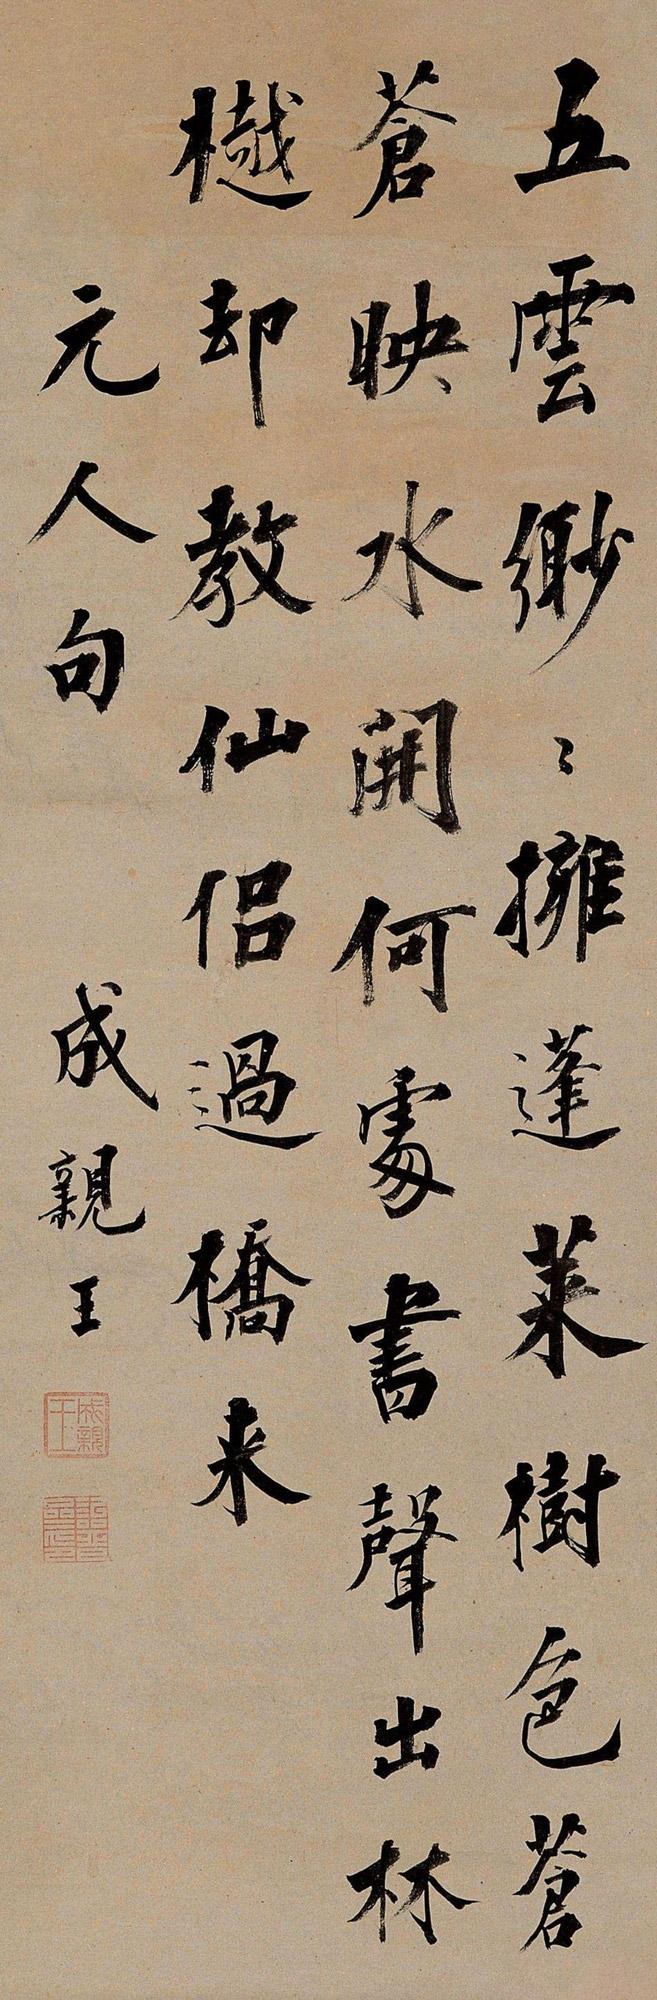 五雲縹〻擁蓬萊樹色蒼
蒼映水開何處書聲出林
樾却教仙侣過橋来
元人句
成親王
成親王